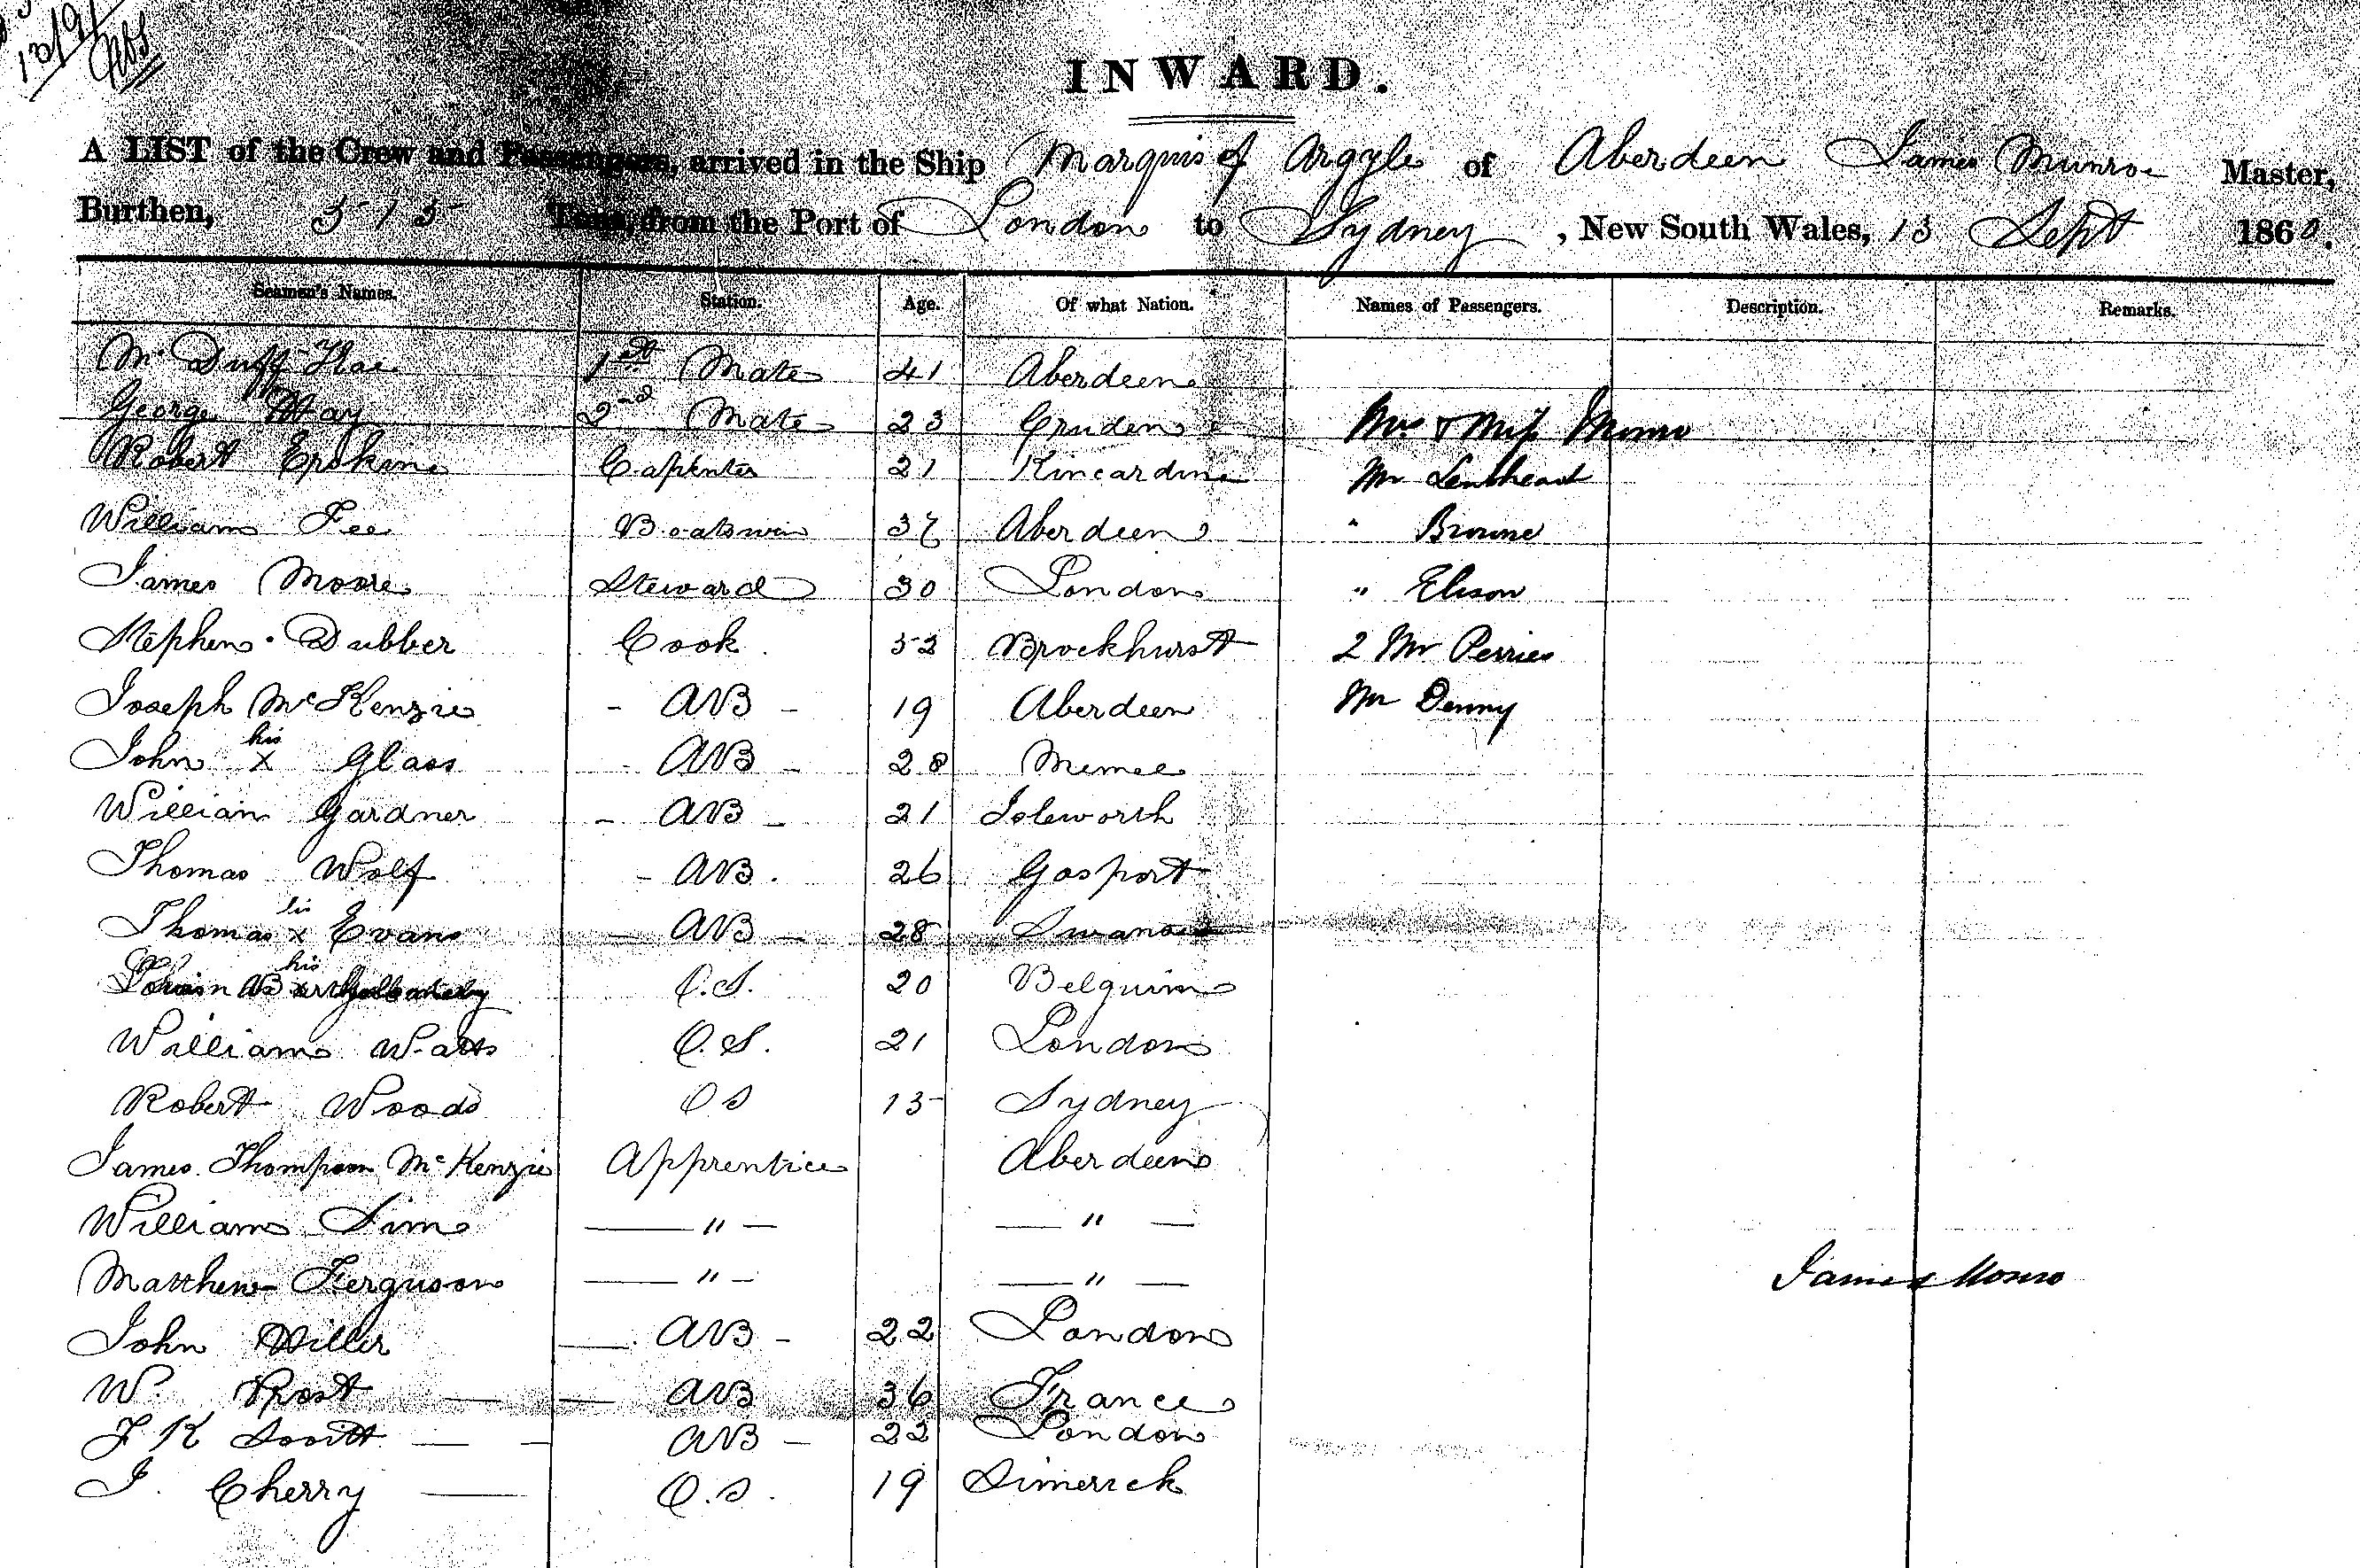 INWARD.
A LIST of the Crew and Passengers, arrived in the Ship Marquis of Argyle of Aberdeen James Munro Master,
Burthen, 515 Tons, from the Port of London to Sydney, New South Wales, 13 Sept 1860.
Seamen's Names. Station. Age. Of what Nation. Names of Passengers. Description. Remarks.
Mc Duff 1st Mate 41 Aberdeen
George Hay 2nd Mate 23 Cruden Mrs & Miss Munro
Robert Erskine Carpenter 21 Kincardine Mr
William Fee Boatswin 37 Aberdeen " Browne
James Moore Steward 30 London " Elison
Stephen Dubber Cook 53 Brockhurst 2 Mr Perries
Joseph McKenzie - AB - 19 Aberdeen Mr Denny
John his x Glass - AB - 28 Memel
William Gardner - AB - 21 Isleworth
Thomas Wolf - AB. 26 Gosport
Thomas his x Evans - AB - 28 Swansea
his O.S. 20 Belguim
William Watts O.S. 21 London
Robert Woods OS 15 Sydney
James Thompson McKenzie Apprentice Aberdeen
William Sim " "
Matthew Ferguson " " James Monro
John Miller AB - 22 London
W. Prost AB 36 France
J K Scott AB - 22 London
J. Cherry O.S. 19 Limerick